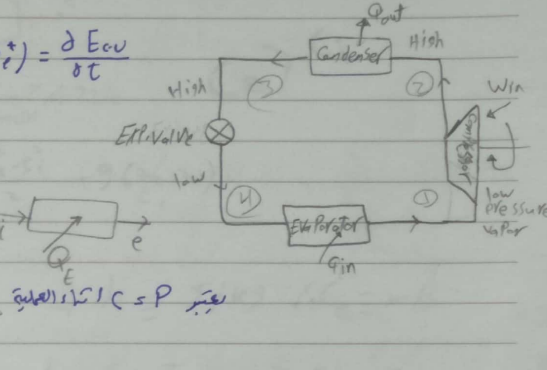 Qout
Condenser
High
High
③
②
Win
e⁺) = ∂Ecv/∂t
Exp.valve
Compressor
low
④
①
low
pressure
vapor
Evaporator
qin
i
e
QE
يعتبر P = C اثناء العملية